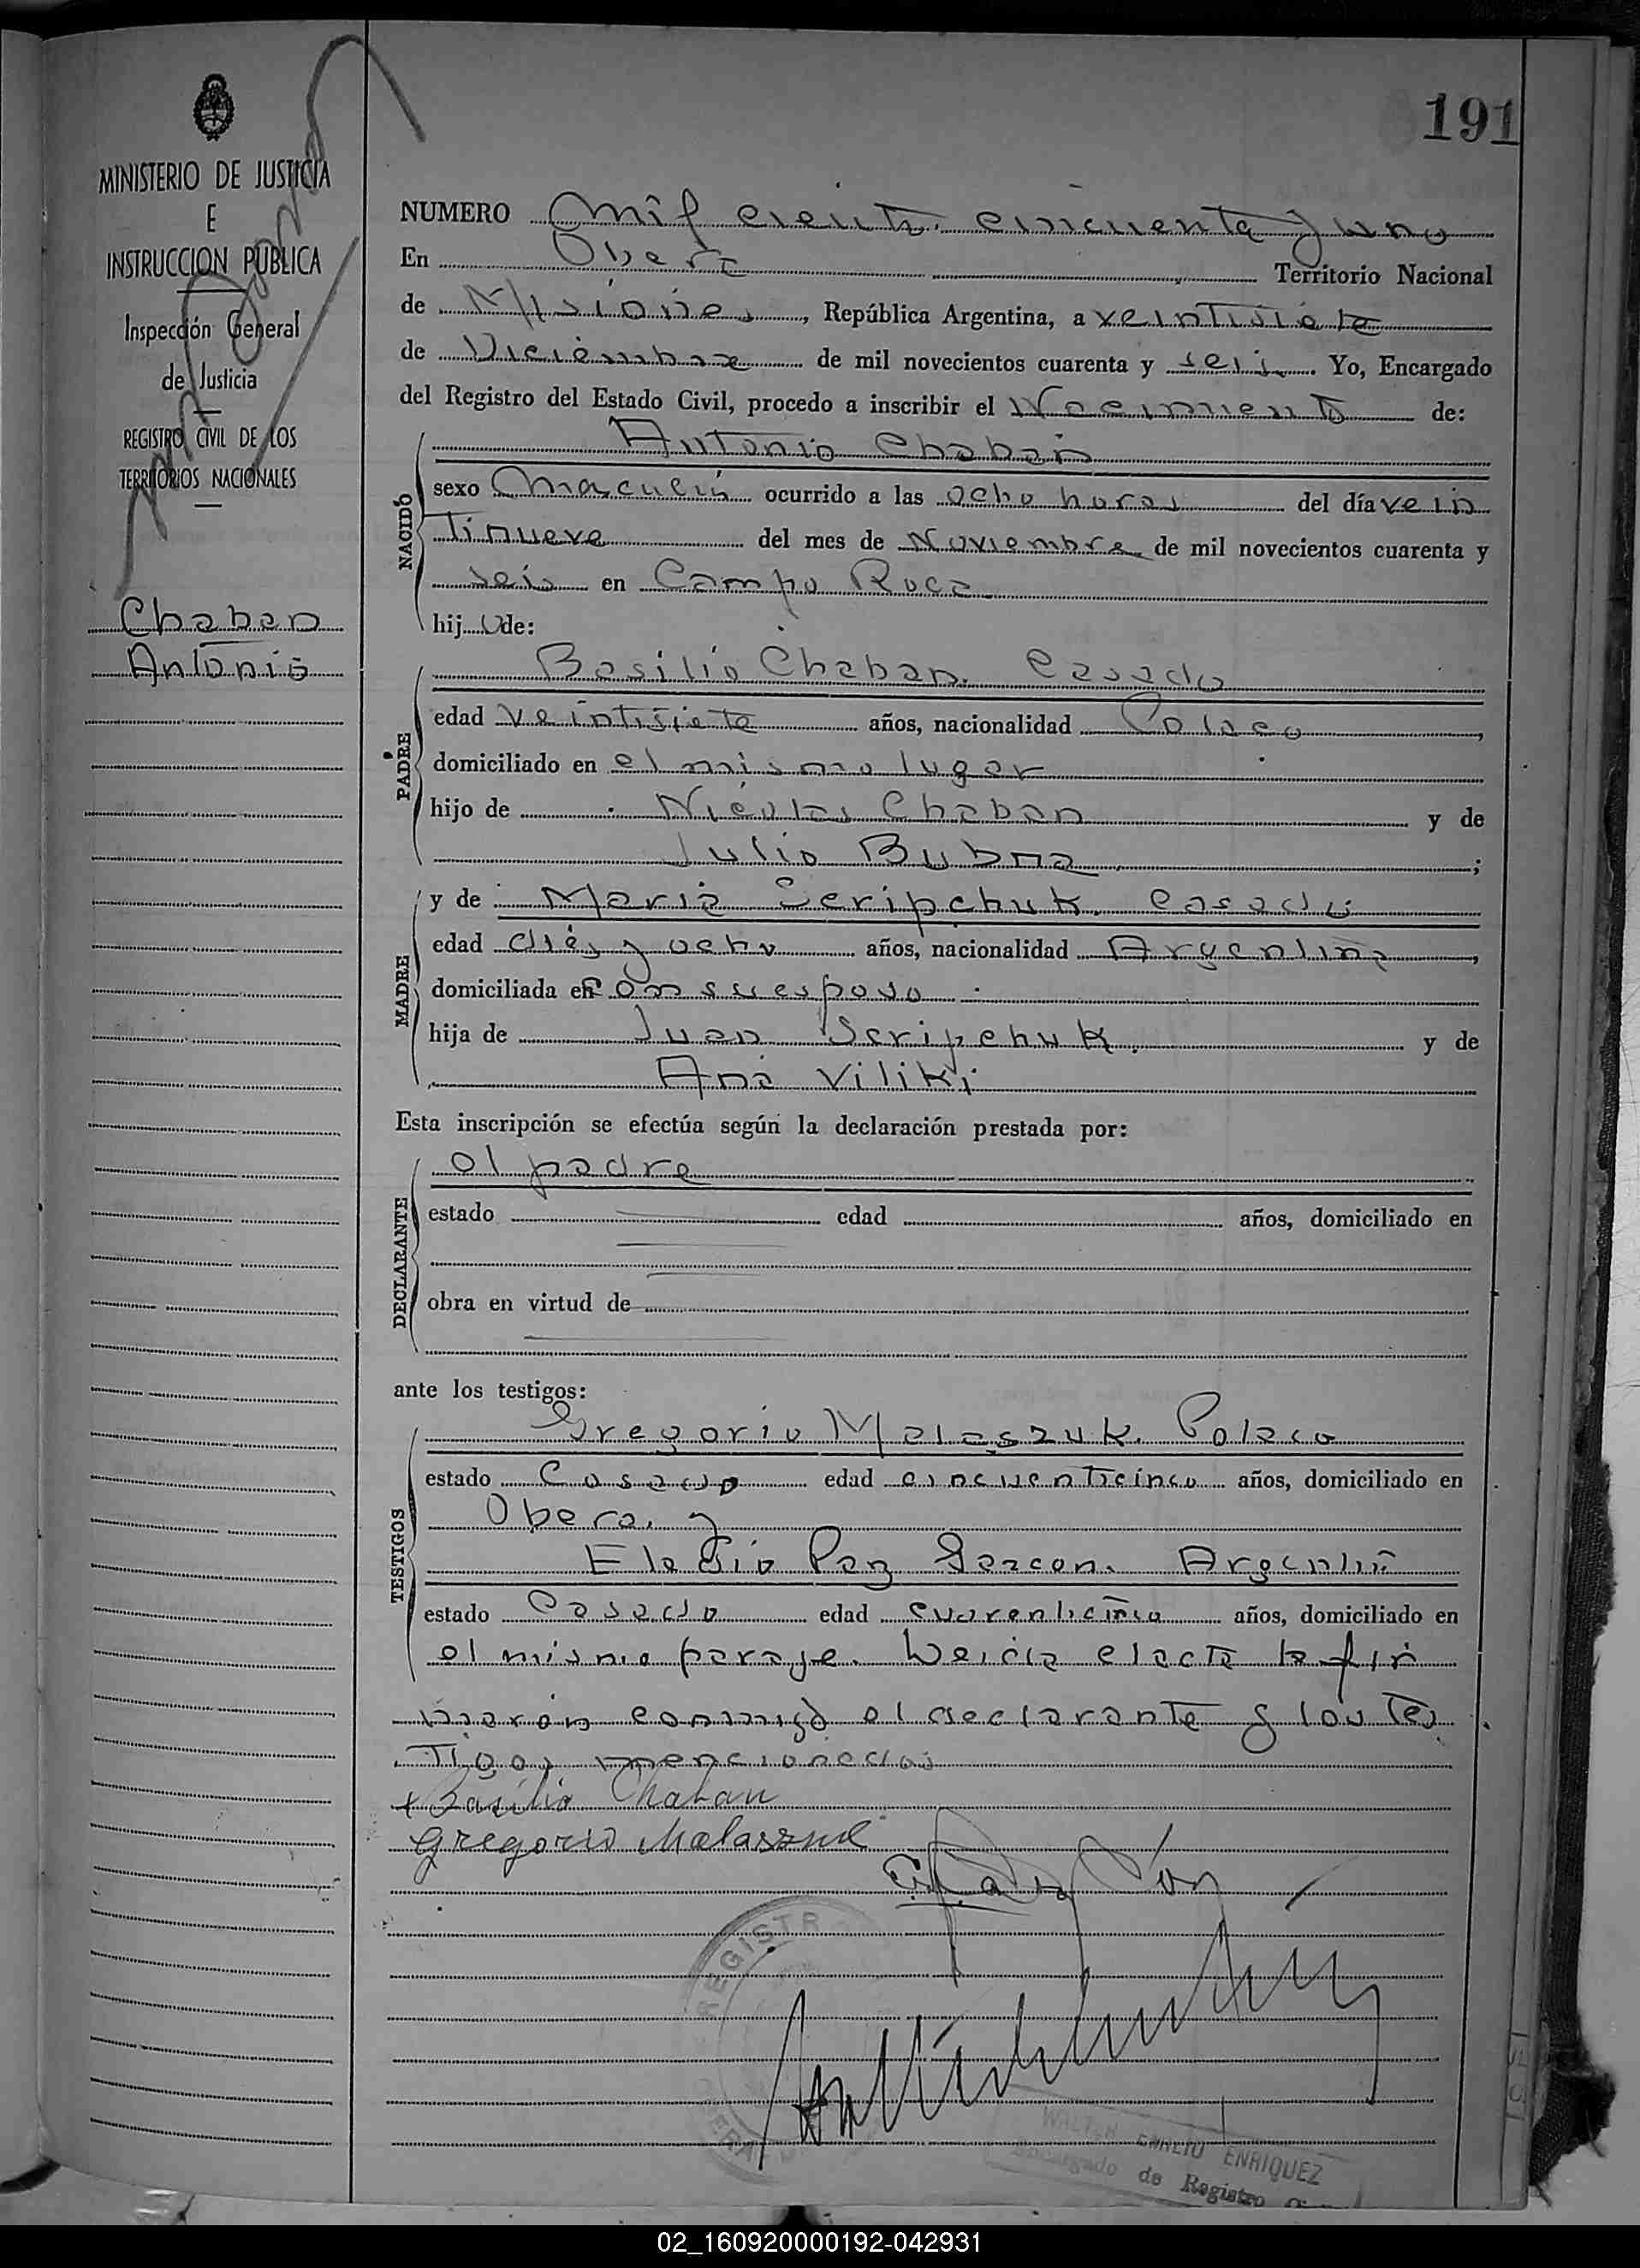 191
MINISTERIO DE JUSTICIA
E
INSTRUCCION PUBLICA
Inspección General
de Justicia
REGISTRO CIVIL DE LOS
TERRITORIOS NACIONALES
Chaban
Antonio
NUMERO Mil ciento cincuenta y uno
En Obera Territorio Nacional
de Misiones, República Argentina, a veintisiete
de Diciembre de mil novecientos cuarenta y seis. Yo, Encargado
del Registro del Estado Civil, procedo a inscribir el Nacimiento de:
Antonio Chaban
NACIDO
sexo Masculin ocurrido a las ocho horas del día vein
tinueve del mes de Noviembre de mil novecientos cuarenta y
seis en Campo Roca
hijo de:
Basilio Chaban. Casado
PADRE
edad veintisiete años, nacionalidad Polaco,
domiciliado en el mismo lugar
hijo de Nicolas Chaban y de
Julia Bubna;
y de Maria Scripchuk. Casada
MADRE
edad diés y ocho años, nacionalidad Argentina,
domiciliada en Con su esposo
hija de Juan Scripchuk. y de
Ana Viliki
Esta inscripción se efectúa según la declaración prestada por:
el padre
DECLARANTE
estado edad años, domiciliado en
obra en virtud de
ante los testigos:
Gregorio Malaszuk. Polaco
TESTIGOS
estado Casado edad cincuenticinco años, domiciliado en
Obera. y
Eladio Paz Garcon. Argentin
estado Casado edad cuarenticinco años, domiciliado en
el mismo paraje. Leida el acta la fir
maron conmigo el declarante y los tes
tigos mencionados
+ Basilio Chaban
Gregorio Malaszuk
REGISTR
WALTER EMILIO ENRIQUEZ
Encargado de Registro
02_160920000192-042931